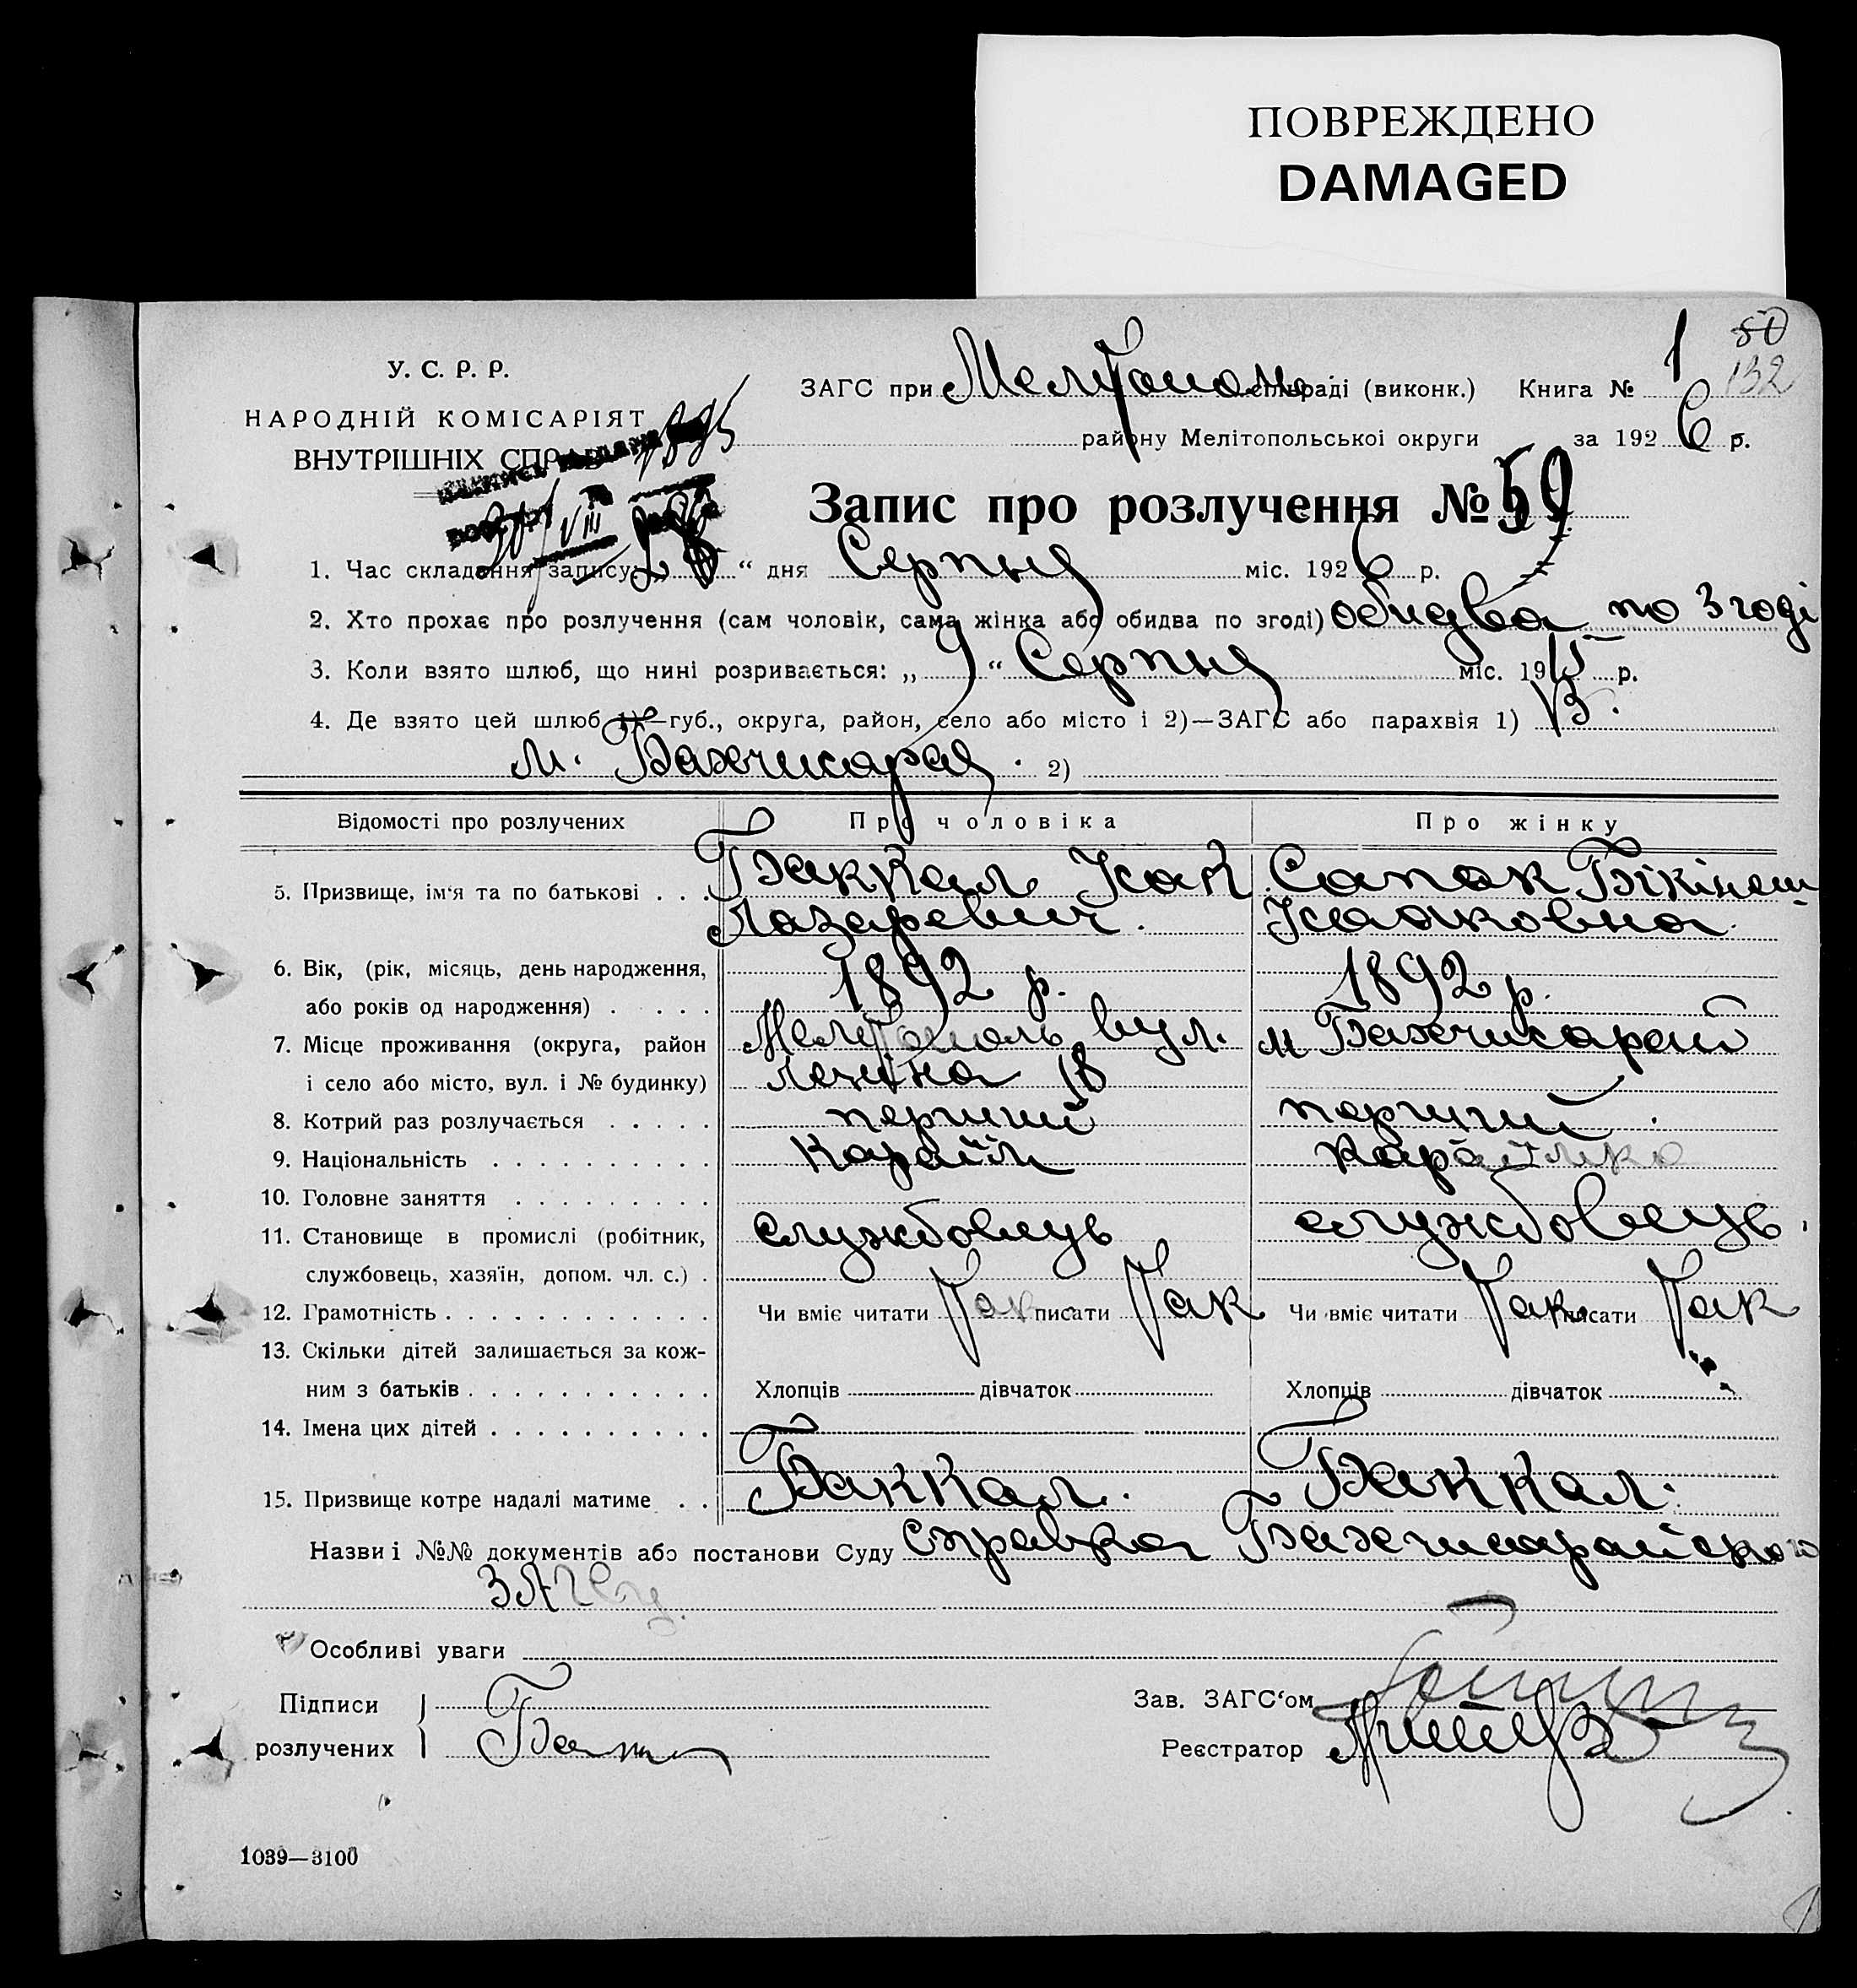 ПОВРЕЖДЕНО
DAMAGED
50
132
У. С. Р. Р.
НАРОДНІЙ КОМІСАРІЯТ
ВНУТРІШНІХ СПРАВ
ЗАГС при Мелітополь сільраді (виконк.) Книга № 1
району Мелітопольської округи за 1926 р.
Запис про розлучення № 59
1. Час складання запису: „28“ дня Серпня міс. 1926 р.
2. Хто прохає про розлучення (сам чоловік, сама жінка або обидва по згоді) обидва по згоді
3. Коли взято шлюб, що нині розривається: „9“ Серпня міс. 1915 р.
4. Де взято цей шлюб 1)—губ., округа, район, село або місто і 2)—ЗАГС або парахвія 1) В.
м. Бахчисарая. 2)
Відомості про розлучених Про чоловіка Про жінку
5. Призвище, ім'я та по батькові . . . Баккал Ісак Сапак Бікінеш
Лазаревич. Ісааковна.
6. Вік, (рік, місяць, день народження, 1892 р. 1892 р.
або років од народження) . . . .
7. Місце проживання (округа, район Мелітополь вул. м Бахчисарай
і село або місто, вул. і № будинку) Леніна 18
8. Котрий раз розлучається . . . . . перший перший.
9. Національність . . . . . . . . . . Караїм Караїмка
10. Головне заняття . . . . . . . . .
11. Становище в промислі (робітник, службовець службовець.
службовець, хазяїн, допом. чл. с.) .
12. Грамотність . . . . . . . . . . . . Чи вміє читати Так писати Так Чи вміє читати Так писати Так
13. Скільки дітей залишається за кож-
ним з батьків . . . . . . . . . . . Хлопців дівчаток Хлопців дівчаток
14. Імена цих дітей . . . . . . . . . .
15. Призвище котре надалі матиме . . Баккал. Баккал.
Назви і №№ документів або постанови Суду справка Бахчисарайского
ЗАГСу.
Особливі уваги
Підписи
розлучених
Зав. ЗАГС'ом
Реєстратор
1039—3100